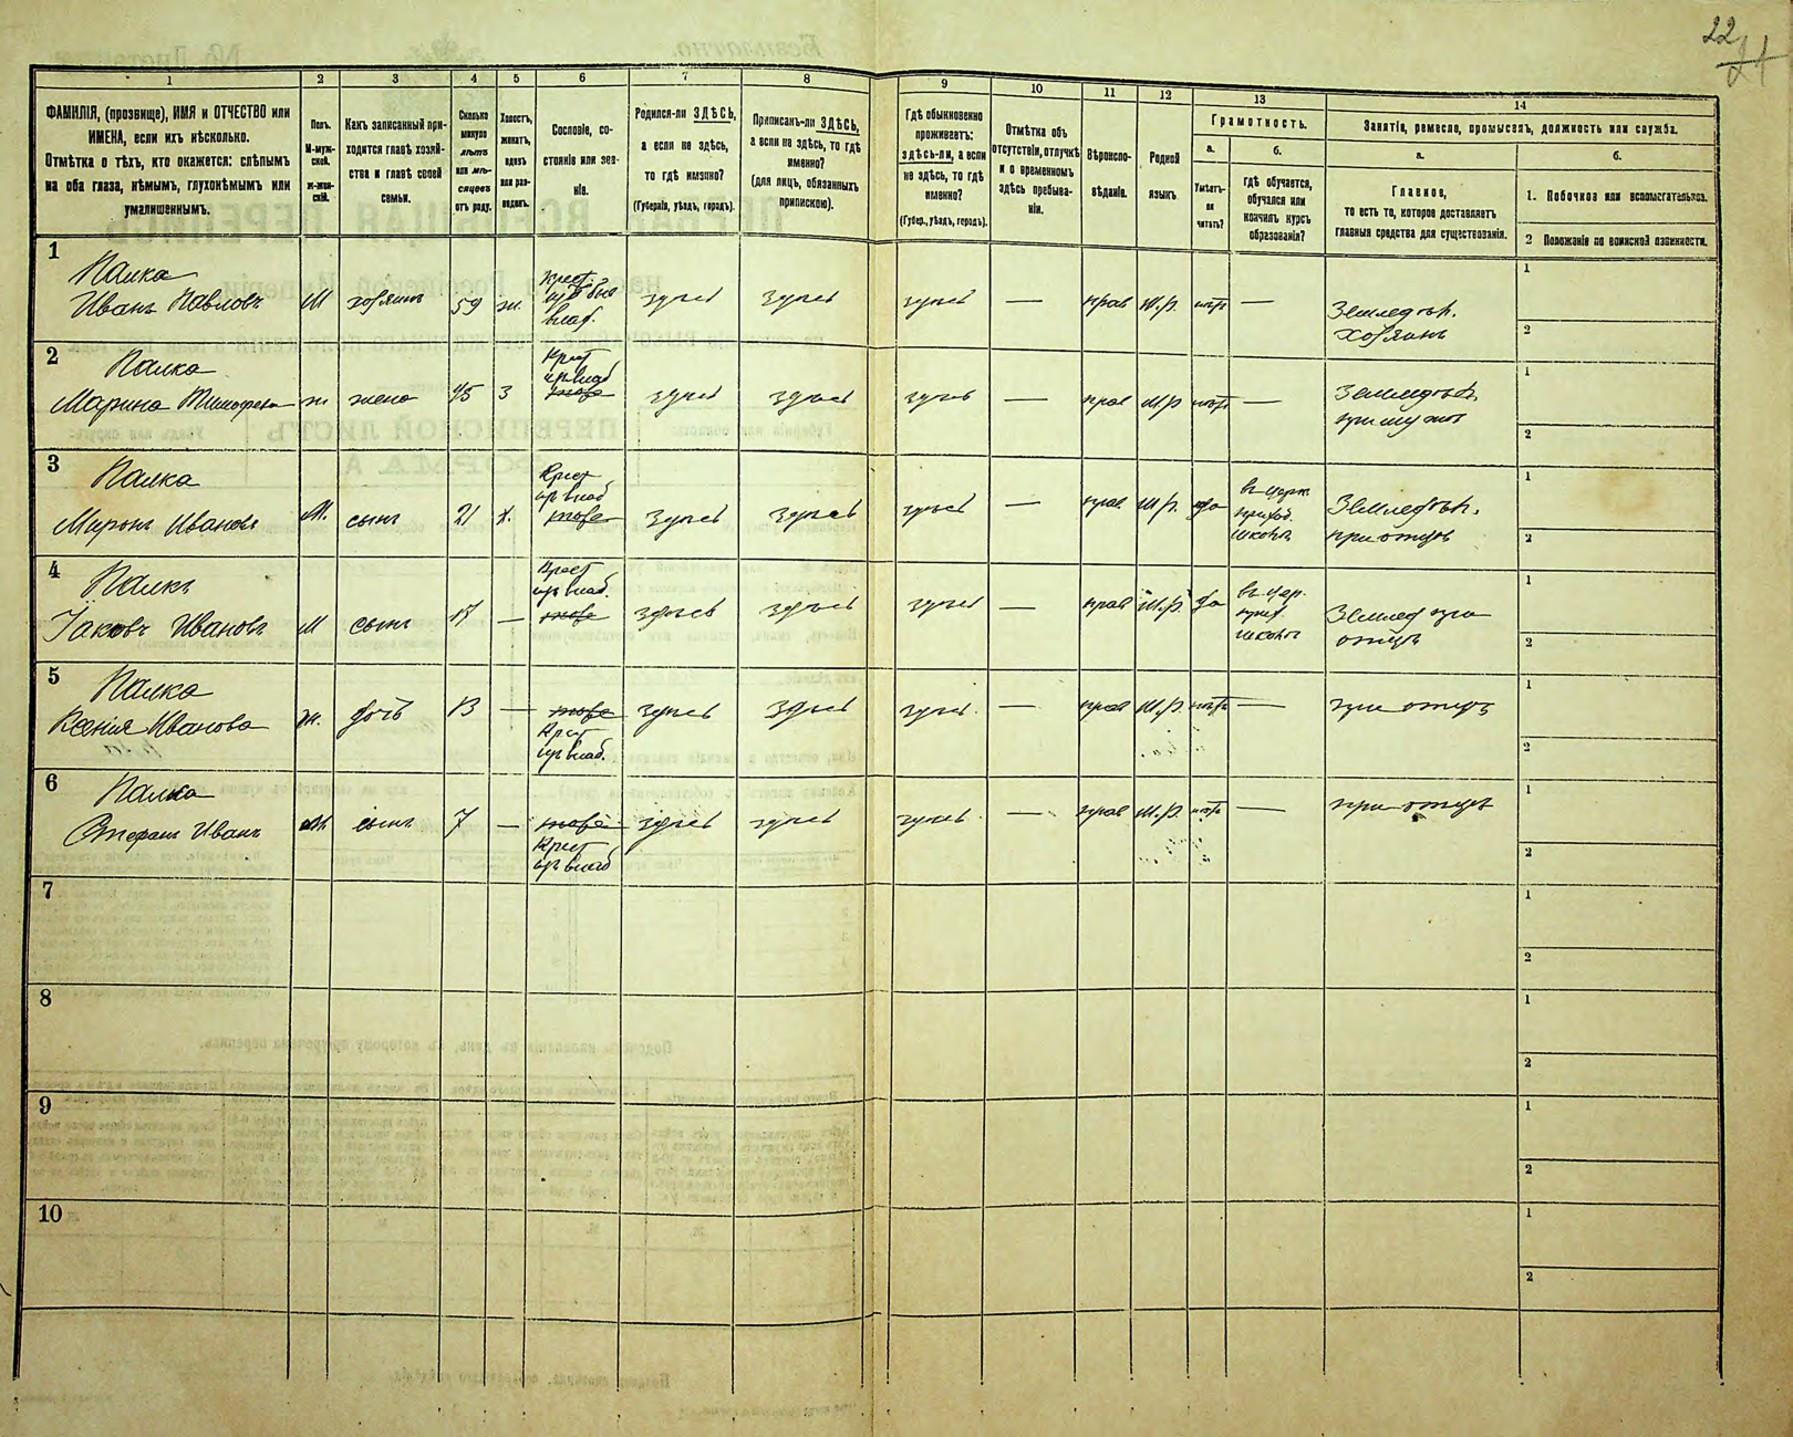 22
21
1 2 3 4 5 6 7 8 9 10 11 12 13 14
ФАМИЛІЯ, (прозвище), ИМЯ и ОТЧЕСТВО или
ИМЕНА, если ихъ нѣсколько.
Отмѣтка о тѣхъ, кто окажется: слѣпымъ
на оба глаза, нѣмымъ, глухонѣмымъ или
умалишеннымъ.
Полъ.
М-муж-
ской.
ж-жен-
скій.
Какъ записанный при-
ходится главѣ хозяй-
ства и главѣ своей
семьи.
Сколько
минуло
лѣтъ
или мѣ-
сяцевъ
отъ роду.
Холостъ,
женатъ,
вдовъ
или раз-
веденъ.
Сословіе, со-
стояніе или зва-
ніе.
Родился-ли ЗДѢСЬ,
а если не здѣсь,
то гдѣ именно?
(Губернія, уѣздъ, городъ).
Приписанъ-ли ЗДѢСЬ,
а если не здѣсь, то гдѣ
именно?
(для лицъ, обязанныхъ
припискою).
Гдѣ обыкновенно
проживаетъ:
здѣсь-ли, а если
не здѣсь, то гдѣ
именно?
(Губер., уѣздъ, городъ).
Отмѣтка объ
отсутствіи, отлучкѣ
и о временномъ
здѣсь пребыва-
ніи.
Вѣроиспо-
вѣданіе.
Родной
языкъ.
Грамотность.
а.
Умѣетъ-
ли
читать?
б.
Гдѣ обучается,
обучался или
кончилъ курсъ
образованія?
Занятіе, ремесло, промыселъ, должность или служба.
а.
Главное,
то есть то, которое доставляетъ
главныя средства для существованія.
б.
1. Побочное или вспомогательное.
2 Положеніе по воинской повинности.
1
Палка
Иванъ Павловъ М хозяинъ 59 ж. Крест.
влад.
здѣсь здѣсь здѣсь — прав М.р. нѣтъ — Земледѣл.
хозяинъ
1
2
2
Палка
Марина Тимофеева ж жена 45 З Крест
тоже
здѣсь здѣсь здѣсь — прав М.р нѣтъ — Земледѣл.
при мужѣ
1
2
3
Палка
Миронъ Ивановъ М. сынъ 21 х. Крест
тоже
здѣсь здѣсь здѣсь — прав М.р. да въ церк.
приход.
школѣ
Земледѣл.
при отцѣ
1
2
4
Палка
Іаковъ Ивановъ М сынъ — Крест
тоже
здѣсь здѣсь здѣсь — прав М.р. да въ цер.
приход.
школѣ
Землед при
отцѣ
1
2
5
Палка
Ксенія Иванова ж. дочь 13 — тоже
Крест
здѣсь здѣсь здѣсь — прав М.р. нѣтъ — при отцѣ
1
2
6
Палка
Стефанъ Иванъ М сынъ 7 — тоже
Крест
здѣсь здѣсь здѣсь — прав М.р. нѣтъ — при отцѣ
1
2
7
1
2
8
1
2
9
1
2
10
1
2